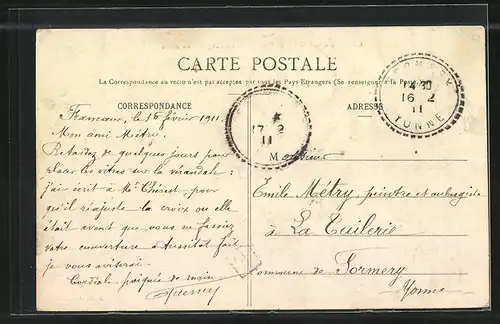 CARTE POSTALE
La Correspondance au recto n'est pas acceptée par tous les Pays Etrangers (Se renseigner à la Poste)
CORRESPONDANCE
ADRESSE
le 16 février 1911.
Mon ami Métry.
Retardez de quelques jours pour
placer les vitres sur la vérandah:
j'ai écrit à Mr pour
qu'il réajuste la croix ou elle
était avant que vous ne fassiez
votre couverture aussitot fait
je vous aviserai.
Cordiale poignée de main
Monsieur
Emile Métry, peintre et aubergiste
à La Tuilerie
Commune de Sormery
Yonne
SORMERY
14 30
16 2
11
YONNE
17 2
11